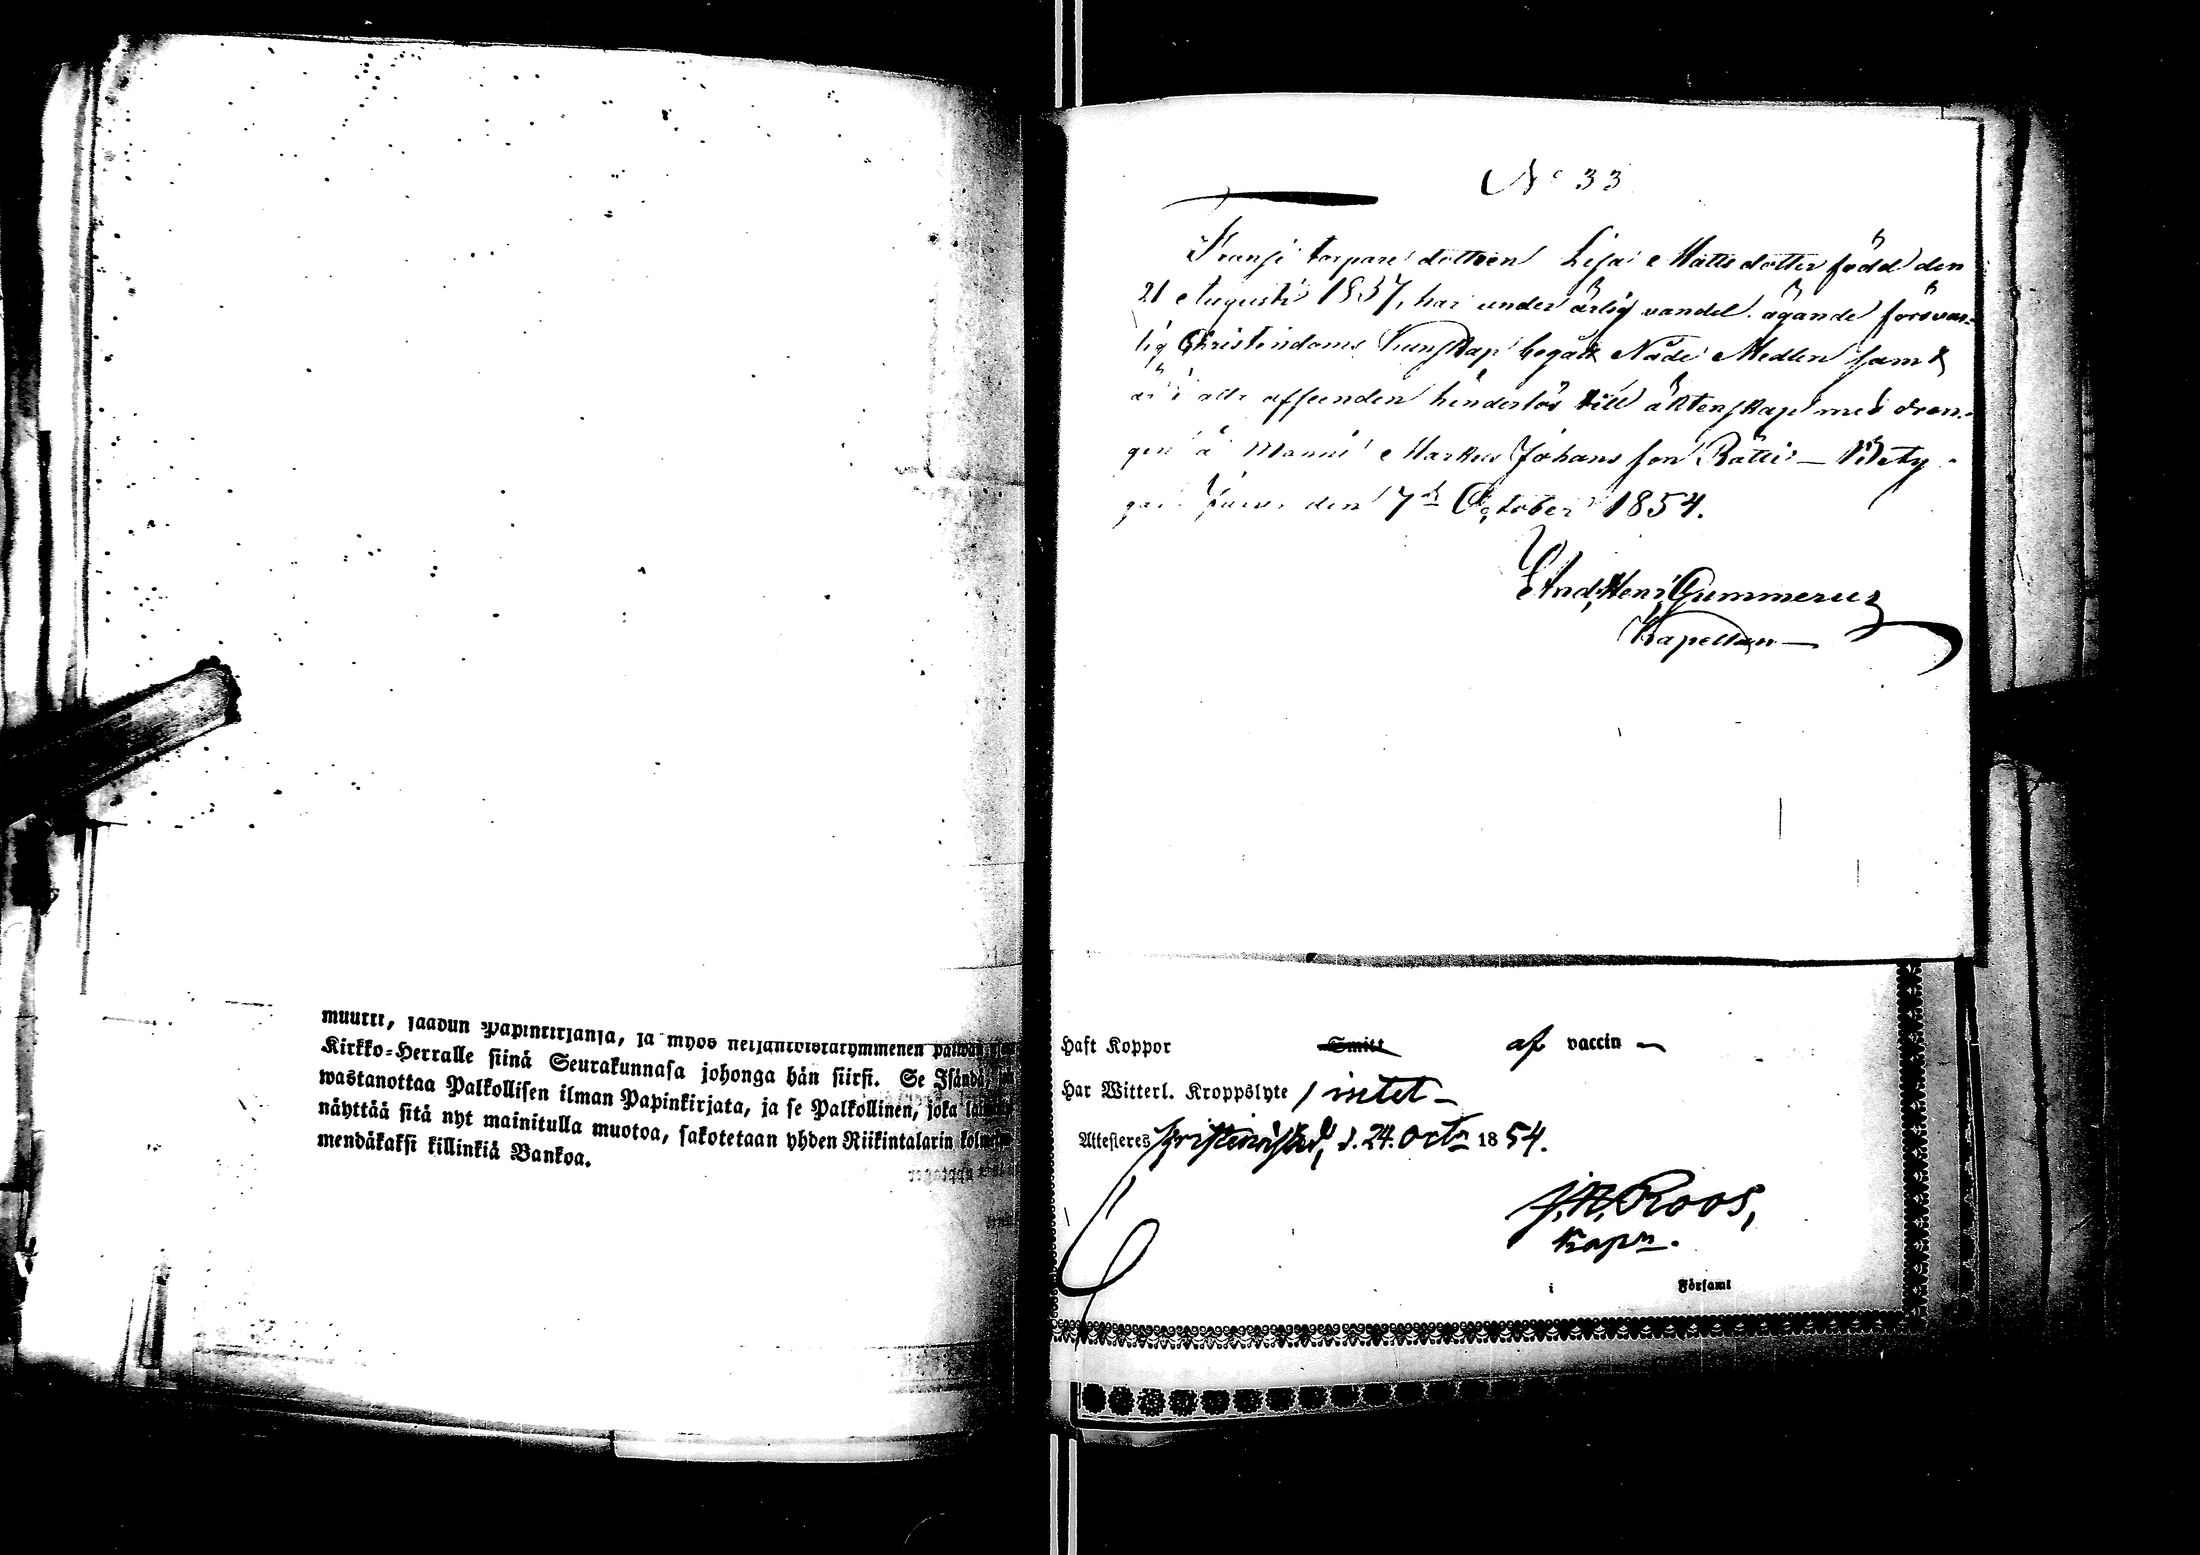 muutti, saadun Papinkirjansa, ja myös neljäntoistakymmenen päiwän
Kirkko-Herralle siinä Seurakunnasa johonga hän siirsi. Se Isändä,
wastanottaa Palkollisen ilman Papinkirjata, ja se Palkollinen, joka
näyttää sitä nyt mainitulla muotoa, sakotetaan yhden Riikintalarin
mendäkaksi killinkiä Bankoa.
No 33
torpare dottren Lisa Mattsdotter född den
21 Augusti 1837, har under ärlig vandel ägande försvar-
lig Christendoms Kunskap begått Nåde Medlen samt
är i alla afseenden hinderlös till äktenskap med dren-
gen å Manni Markus Johansson Rätti – Bety-
gar den 7de October 1854.
And. Henr. Gummerus
Kapellan
Haft Koppor Smitt af vaccin
Har Witterl. Kroppslyte / intet
Attesteras Kristinestad, d. 24. Octr 1854.
J. A. Roos,
Kapn.
i Församl